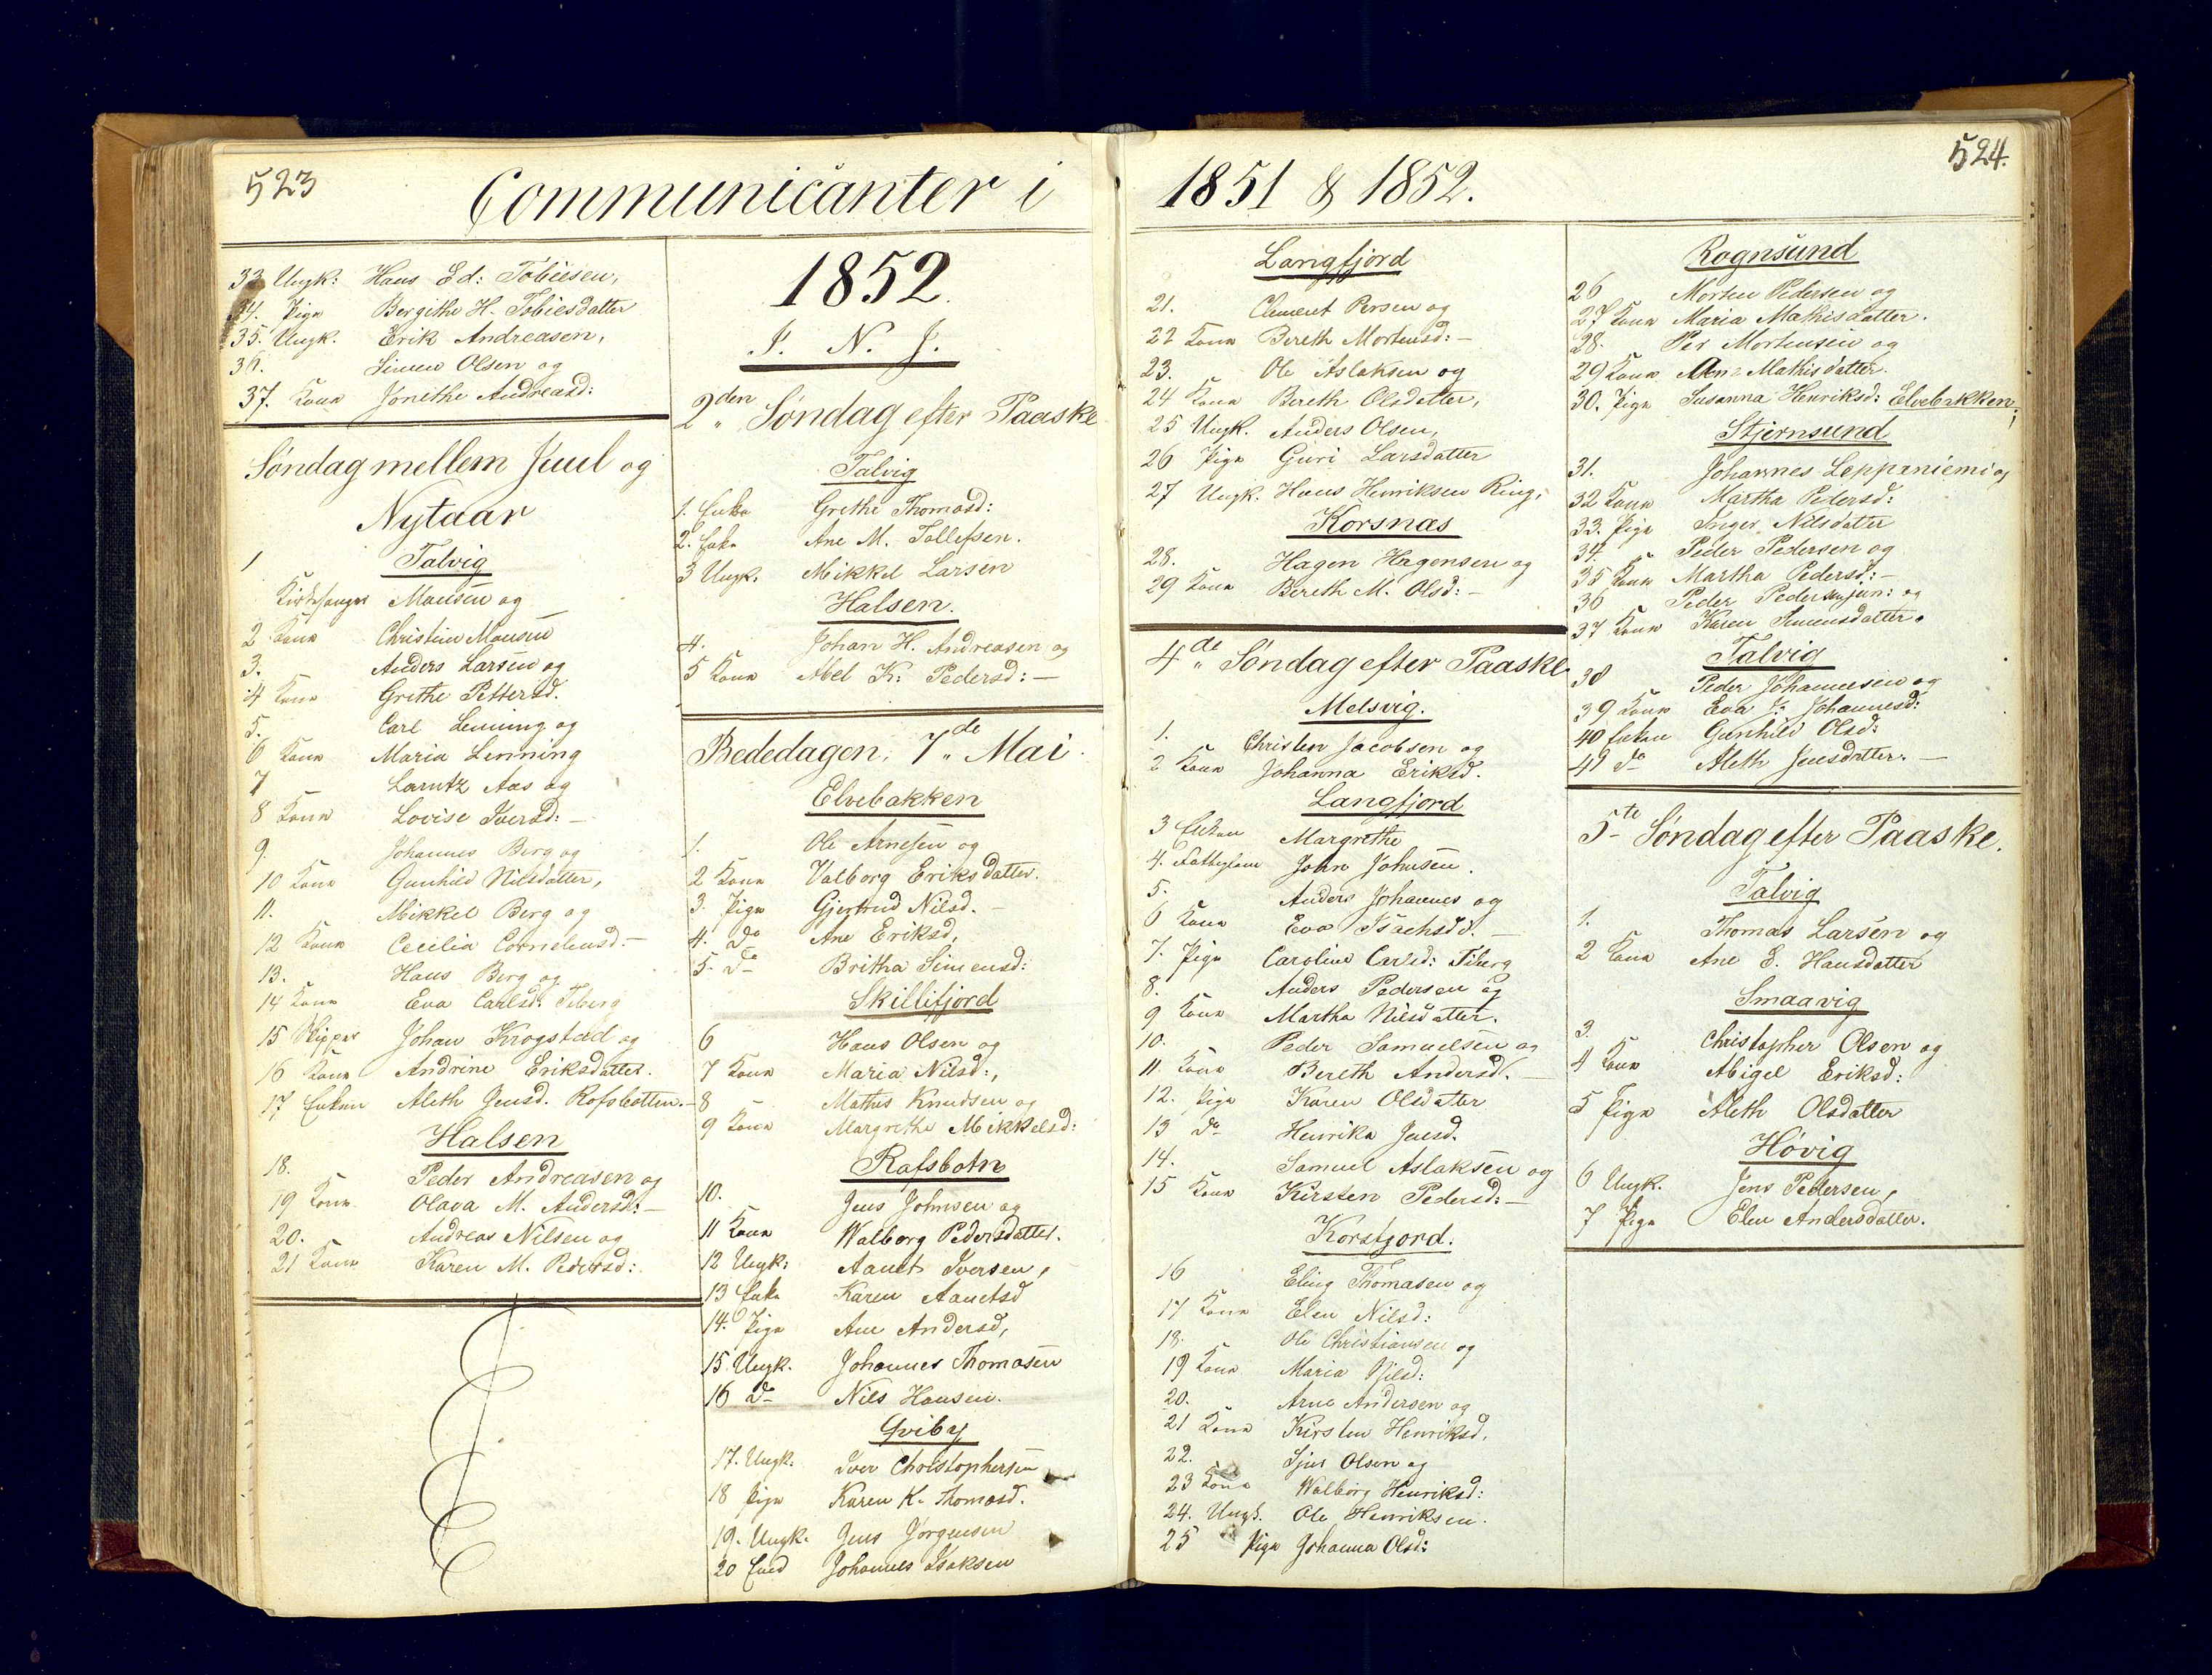 523
Communicanter i
33 Ungk: Hans Ed: Tobiesen,
34. Pige Bergithe H. Tobiesdatter
35. Ungk. Erik Andreasen,
36. Simen Olsen og
37. Kone Jonethe Andreasd:
Søndag mellem Juul og
Nytaar
Talvig
1 Kirkesanger Monsen og
2 Kone Christine Monsen
3. Anders Larsen og
4 Kone Grethe Pettersd.
5. Carl Lenning og
6 Kone Maria Lenning
7 Larntz Aas og
8 Kone Lovise Iversd: –
9. Johannes Berg og
10 Kone Gunhild Nilsdatter,
11. Mikkel Berg og
12 Kone Cecilia Corneliusd. –
13. Hans Berg og
14 Kone Eva Carlsd. Tiberg
15 Skipper Johan Krogstad og
16 Kone Andrine Eriksdatter.
17 Enken Aleth Jensd. Rafsbotten. –
Halsen
18. Peder Andreasen og
19 Kone Olava M. Andersd: –
20. Andreas Nilsen og
21 Kone Karen M. Pedersd:
1852.
I. N. J.
2den Søndag efter Paaske
Talvig
1. Enke Grethe Thomasd:
2. Enke Ane M. Tollefsen.
3 Ungk. Mikkel Larsen
Halsen.
4. Johan H. Andreasen og
5 Kone Abel K. Pedersd: –
Bededagen, 7de Mai.
Elvebakken
1. Ole Arnesen og
2 Kone Valborg Eriksdatter.
3. Pige Gjertrud Nilsd. –
4. Do Ane Eriksd,
5. Do Britha Simensd:
Skillifjord
6 Hans Olsen og
7 Kone Maria Nilsd:,
8 Mathis Knudsen og
9 Kone Margrethe Mikkelsd:
Rafsbotn
10. Jens Johnsen og
11 Kone Walborg Pedersdatter.
12 Ungk: Aanet Iversen,
13 Enke Karen Aanetsd
14. Pige Ane Andersd,
15 Ungk. Johannes Thomasen
16 Do Nils Hansen.
Qviby
17. Ungk. Iver Christophersen
18 Pige Karen K. Thomasd.
19. Ungk. Jens Jørgensen
20 Johannes Isaksen
1851 & 1852.
524.
Langfjord
21. Clemet Persen og
22 Kone Bereth Mortensd: –
23. Ole Aslaksen og
24 Kone Bereth Olsdatter,
25 Ungk. Anders Olsen,
26 Pige Guri Larsdatter
27 Ungk. Hans Henriksen Ring,
Korsnæs
28. Hagen Hagensen og
29 Kone Bereth M. Olsd: –
4de Søndag efter Paaske
Melsvig.
1. Christen Jacobsen og
2 Kone Johanna Eriksd.
Langfjord
3 Enken Margrethe
4. Fattiglem John Johnsen.
5. Anders Johannes og
6 Kone Eva Isachsd. –
7. Pige Caroline Carlsd: Tiberg
8. Anders Pedersen og
9 Kone Martha Nilsdatter.
10. Peder Samuelsen og
11 Kone Bereth Andersd. –
12. Pige Karen Olsdatter
13 Do Henrika Jensd.
14. Samuel Aslaksen og
15 Kone Kirsten Pedersd: –
Korsfjord.
16 Eling Thomasen og
17 Kone Elen Nilsd:
18. Ole Christiansen og
19 Kone Maria Nilsd:
20. Arne Andersen og
21 Kone Kirsten Henriksd.
22. Olsen og
23 Kone Walborg Henriksd:
24. Ungk. Ole Henriksen.
25 Pige Johanna Olsd:
Rognsund
26 Morten Pedersen og
27 Kone Maria Mathisdatter.
28. Per Mortensen og
29 Kone Ane Mathisdatter.
30. Pige Susanna Henriksd: Elvebakken;
Stjernsund
31. Johannes Leppaniemi og
32 Kone Martha Pedersd:
33. Pige Inger Nilsdatter
34. Peder Pedersen og
35 Kone Martha Pedersd: –
36 Peder Pedersen jun: og
37 Kone Karen Simensdatter.
Talvig
38 Peder Johannesen og
39 Kone Eva Johannesd:
40 Enken Gunhild Olsd:
41 Do Aleth Jensdatter. –
5te Søndag efter Paaske.
Talvig
1. Thomas Larsen og
2 Kone Ane E. Hansdatter
Smaavig
3. Christopher Olsen og
4 Kone Abigel Eriksd:
5 Pige Aleth Olsdatter
Høvig
6 Ungk. Jens Pedersen,
7 Pige Elen Andersdatter.